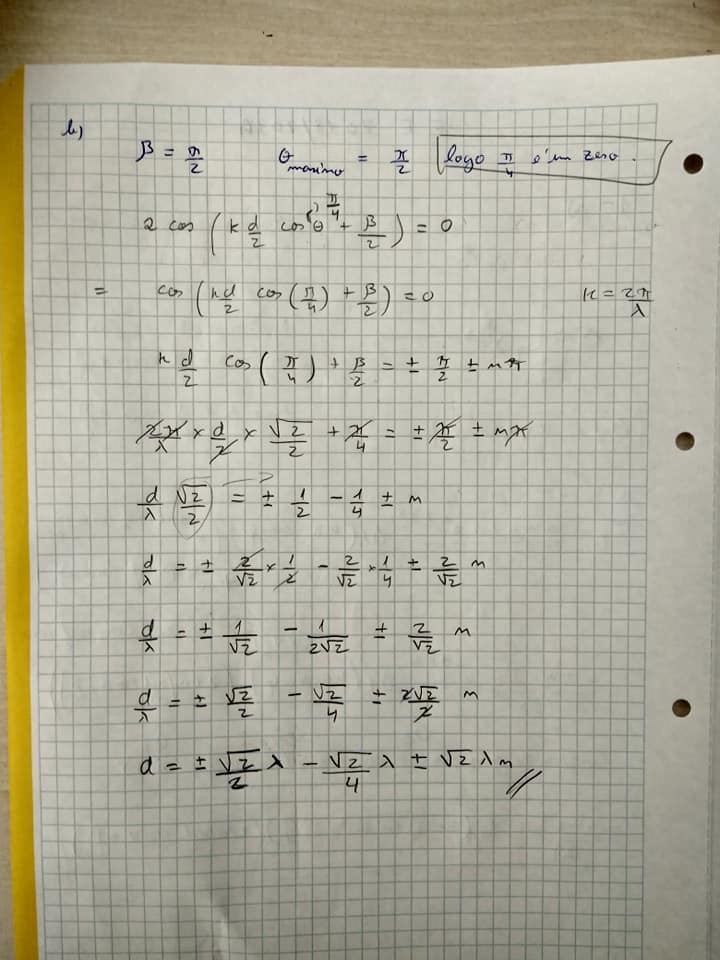 b)
β = π/2 θmaximo = π/2 logo π/4 é um zero.
2 cos (k d/2 cos θ + β/2) = 0 π/4
= cos (kd/2 cos(π/4) + β/2) = 0 k = 2π/λ
k d/2 cos(π/4) + β/2 = ± π/2 ± mπ
2π/λ × d/2 × √2/2 + π/4 = ± π/2 ± mπ
d/λ √2/2 = ± 1/2 - 1/4 ± m
d/λ = ± 2/√2 × 1/2 - 2/√2 × 1/4 ± 2/√2 m
d/λ = ± 1/√2 - 1/2√2 ± 2/√2 m
d/λ = ± √2/2 - √2/4 ± 2√2/2 m
d = ± √2/2 λ - √2/4 λ ± √2 λ m //